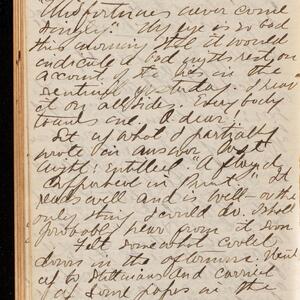 "Misfortunes never come
singly". My eye is so bad
this morning that it would
indicate a bad nights rest, on
account of it. Was in the
Sentinel yesterday. I hear
it on all sides. Everybody
to me. O dear.
Set up what I partially
wrote in answer last
night: Entitled "A
in "Print." It
reads well and is well – or the
only thing I could do. I shall
probably hear from it soon
Felt somewhat cooler
down in the afternoon. Went
up to and carried
up some papers in the